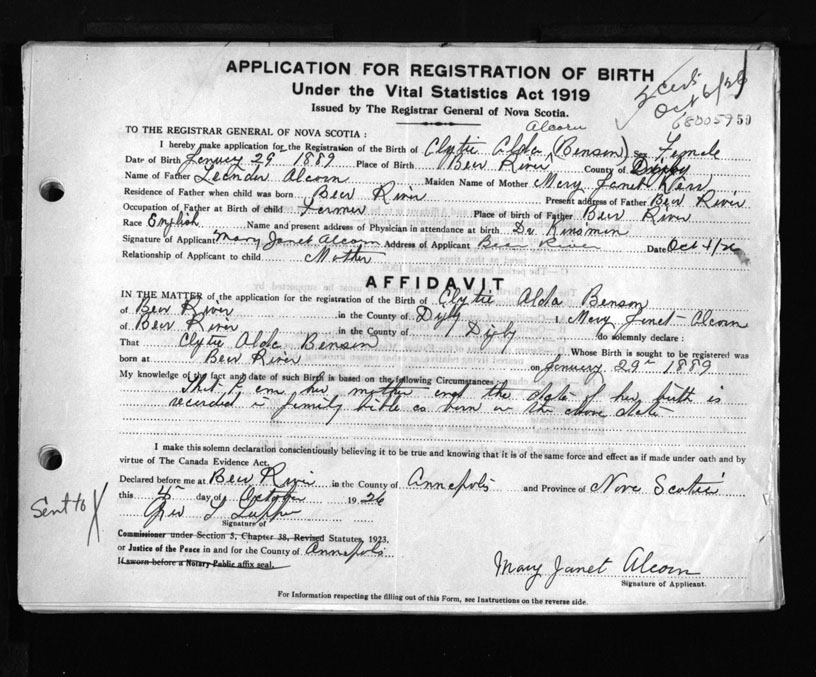 APPLICATION FOR REGISTRATION OF BIRTH
Under the Vital Statistics Act 1919
Issued by The Registrar General of Nova Scotia.
2 Certs
Oct 6/26
68005959
TO THE REGISTRAR GENERAL OF NOVA SCOTIA :
Alcorn
I hereby make application for the Registration of the Birth of Clytie Alda (Benson) Sex Female
Date of Birth January 29 1889 Place of Birth Bear River County of Digby
Name of Father Leander Alcorn Maiden Name of Mother Mary Janet
Residence of Father when child was born Bear River Present address of Father Bear River
Occupation of Father at Birth of child Farmer Place of birth of Father Bear River
Race English Name and present address of Physician in attendance at birth Dr. Kinsman
Signature of Applicant Mary Janet Alcorn Address of Applicant Bear River Date Oct 4/26
Relationship of Applicant to child Mother
AFFIDAVIT
IN THE MATTER of the application for the registration of the Birth of Clytie Alda Benson
of Bear River in the County of Digby I Mary Janet Alcorn
of Bear River in the County of Digby do solemnly declare :
That Clytie Alda Benson Whose Birth is sought to be registered was
born at Bear River on January 29th 1889
My knowledge of the fact and date of such Birth is based on the following Circumstances
That I am her mother and the date of her birth is
recorded in family bible as born on the above date
I make this solemn declaration conscientiously believing it to be true and knowing that it is of the same force and effect as if made under oath and by
virtue of The Canada Evidence Act.
Declared before me at Bear River in the County of Annapolis and Province of Nova Scotia
this 4th day of October 1926
Sent to X
Signature of
Commissioner under Section 5, Chapter 38, Revised Statutes, 1923.
or Justice of the Peace in and for the County of Annapolis
If sworn before a Notary Public affix seal.
Mary Janet Alcorn
Signature of Applicant.
For Information respecting the filling out of this Form, see Instructions on the reverse side.